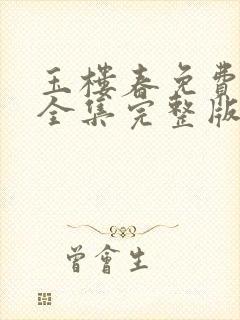 玉樓春免費
全集完整版
曾會生